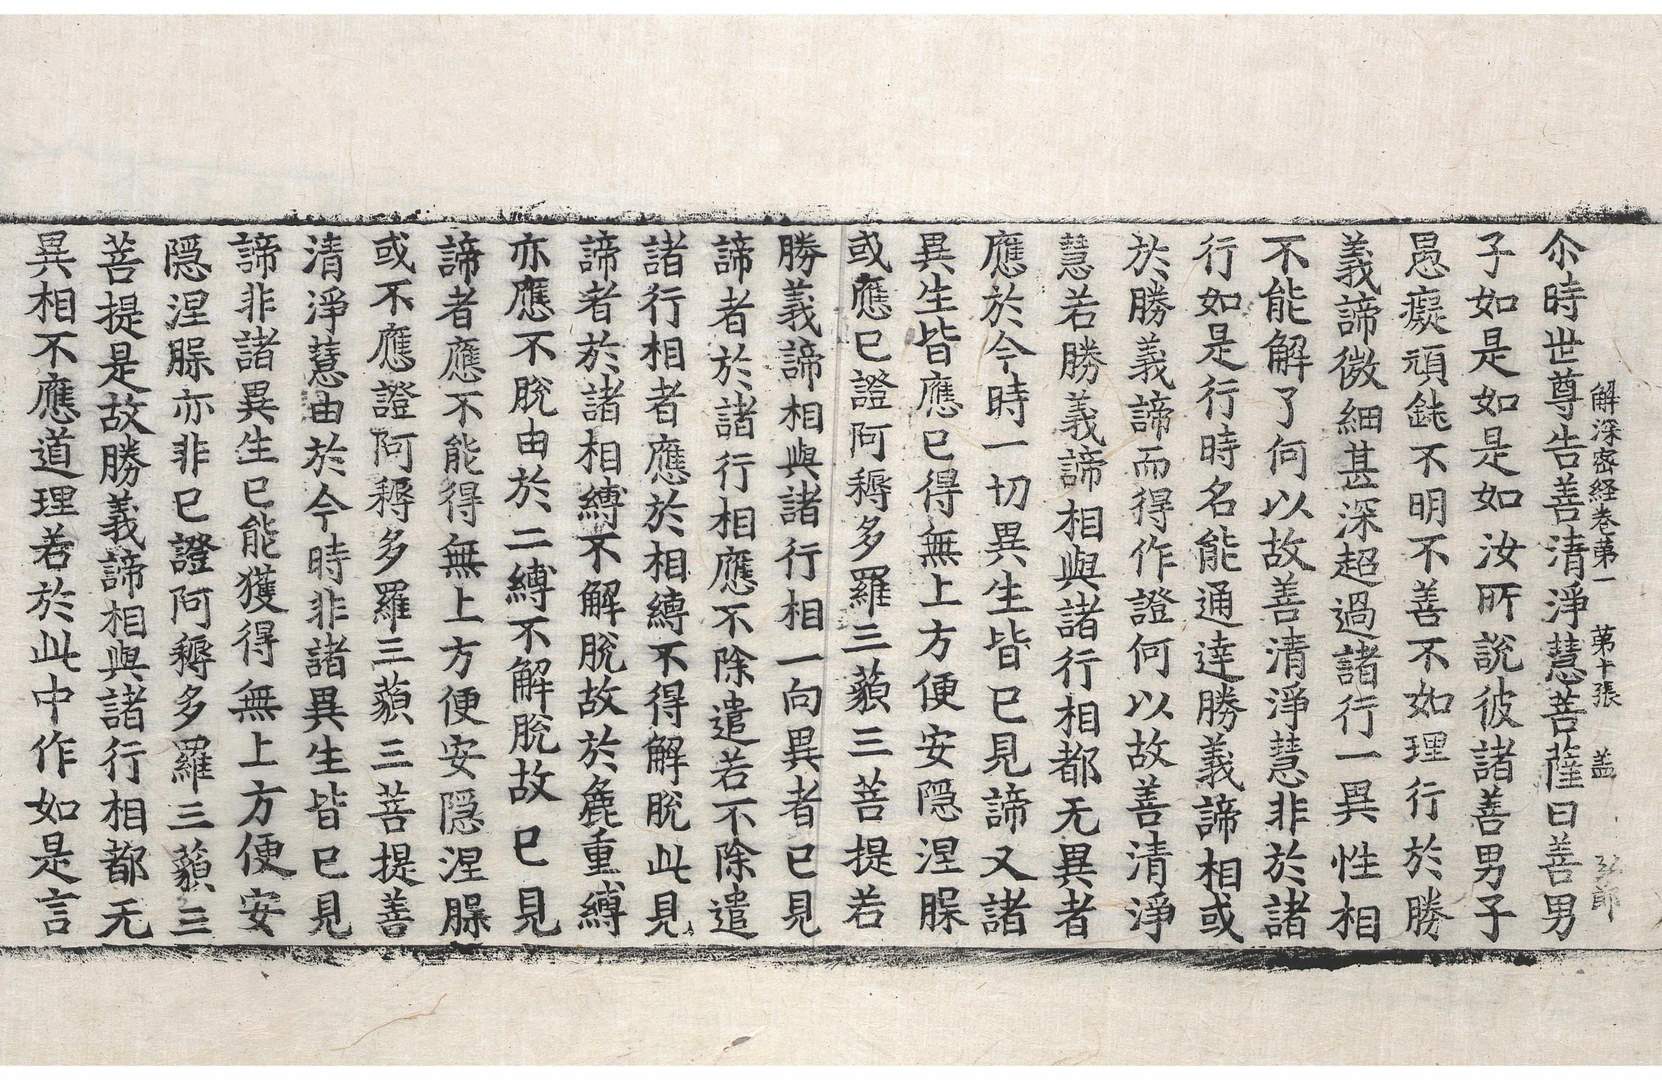 解深密経卷苐一 苐十張 盖
尒時世尊告善清淨慧菩薩曰善男
子如是如是如汝所說彼諸善男子
愚癡頑鈍不明不善不如理行於勝
義諦微細甚深超過諸行一異性相
不能解了何以故善清淨慧非於諸
行如是行時名能通達勝義諦相或
於勝義諦而得作證何以故善清淨
慧若勝義諦相與諸行相都无異者
應於今時一切異生皆已見諦又諸
異生皆應已得無上方便安隠涅槃
或應已證阿耨多羅三藐三菩提若
勝義諦相與諸行相一向異者已見
諦者於諸行相應不除遣若不除遣
諸行相者應於相縛不得解脫此見
諦者於諸相縛不解脫故於麁重縛
亦應不脫由於二縛不解脫故已見
諦者應不能得無上方便安隠涅槃
或不應證阿耨多羅三藐三菩提善
清淨慧由於今時非諸異生皆已見
諦非諸異生已能獲得無上方便安
隠涅槃亦非已證阿耨多羅三藐三
菩提是故勝義諦相與諸行相都无
異相不應道理若於此中作如是言